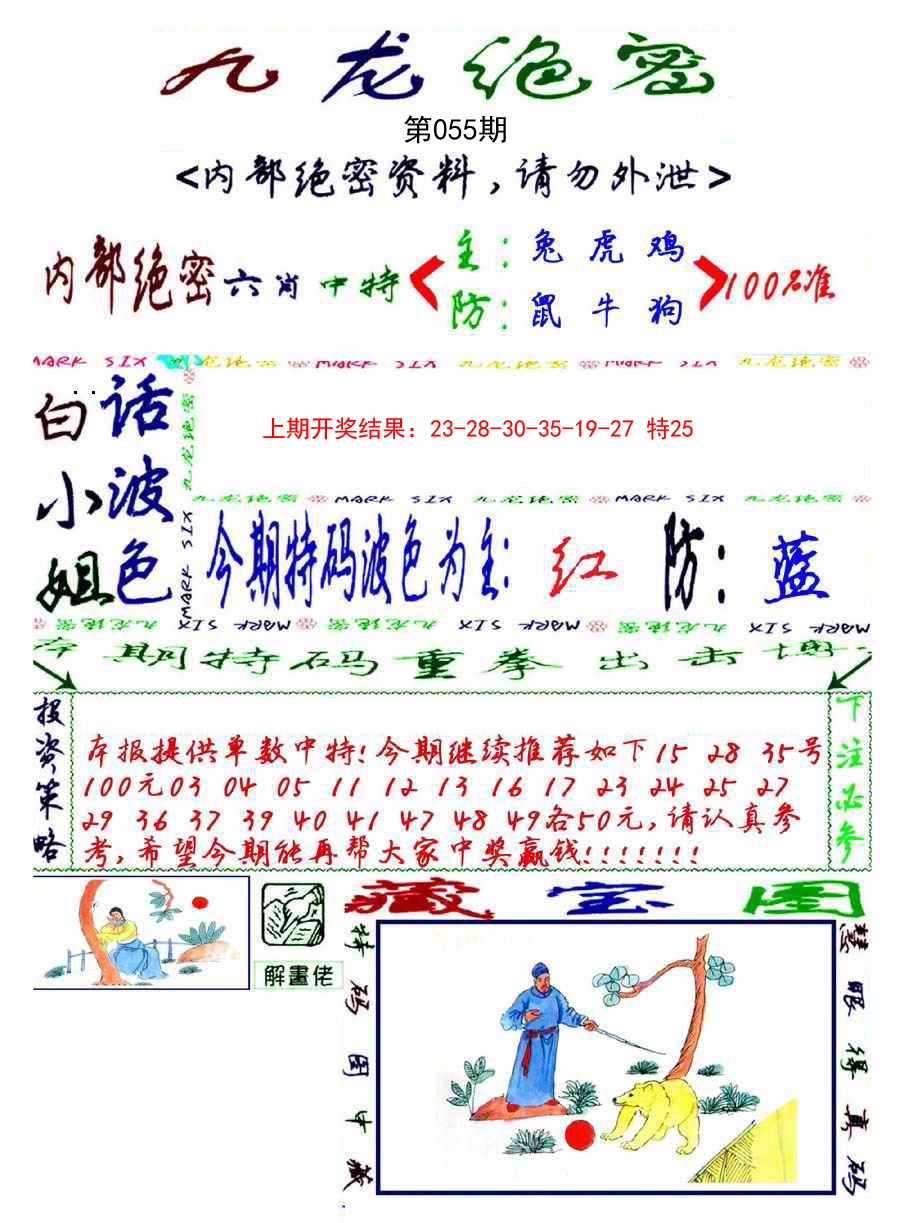 九龙绝密
第055期
<内部绝密资料,请勿外泄>
内部绝密六肖中特
主:兔虎鸡
防:鼠牛狗
100%准
MARK SIX 九龙绝密 MARK SIX 九龙绝密 MARK SIX 九龙绝密
白小姐
话波色
九龙绝密 MARK SIX
上期开奖结果: 23-28-30-35-19-27 特25
九龙绝密 MARK SIX 九龙绝密 MARK SIX 九龙绝密
今期特码波色为主:红 防:蓝
九龙绝密 MARK SIX 九龙绝密 MARK SIX 九龙绝密 MARK SIX
本期特码重拳出击博
投资策略
本报提供单数中特!今期继续推荐如下15 28 35号
100元03 04 05 11 12 13 16 17 23 24 25 27
29 36 37 39 40 41 47 48 49各50元,请认真参
考,希望今期能再帮大家中奖赢钱!!!!!!!
下注必参
解畫佬
藏宝图
特码图中藏
慧眼得真码